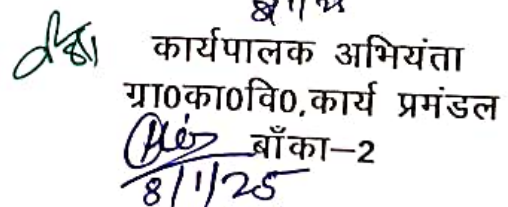 कार्यपालक अभियंता
ग्रा0का0वि0,कार्य प्रमंडल
बाँका–2
8/1/25